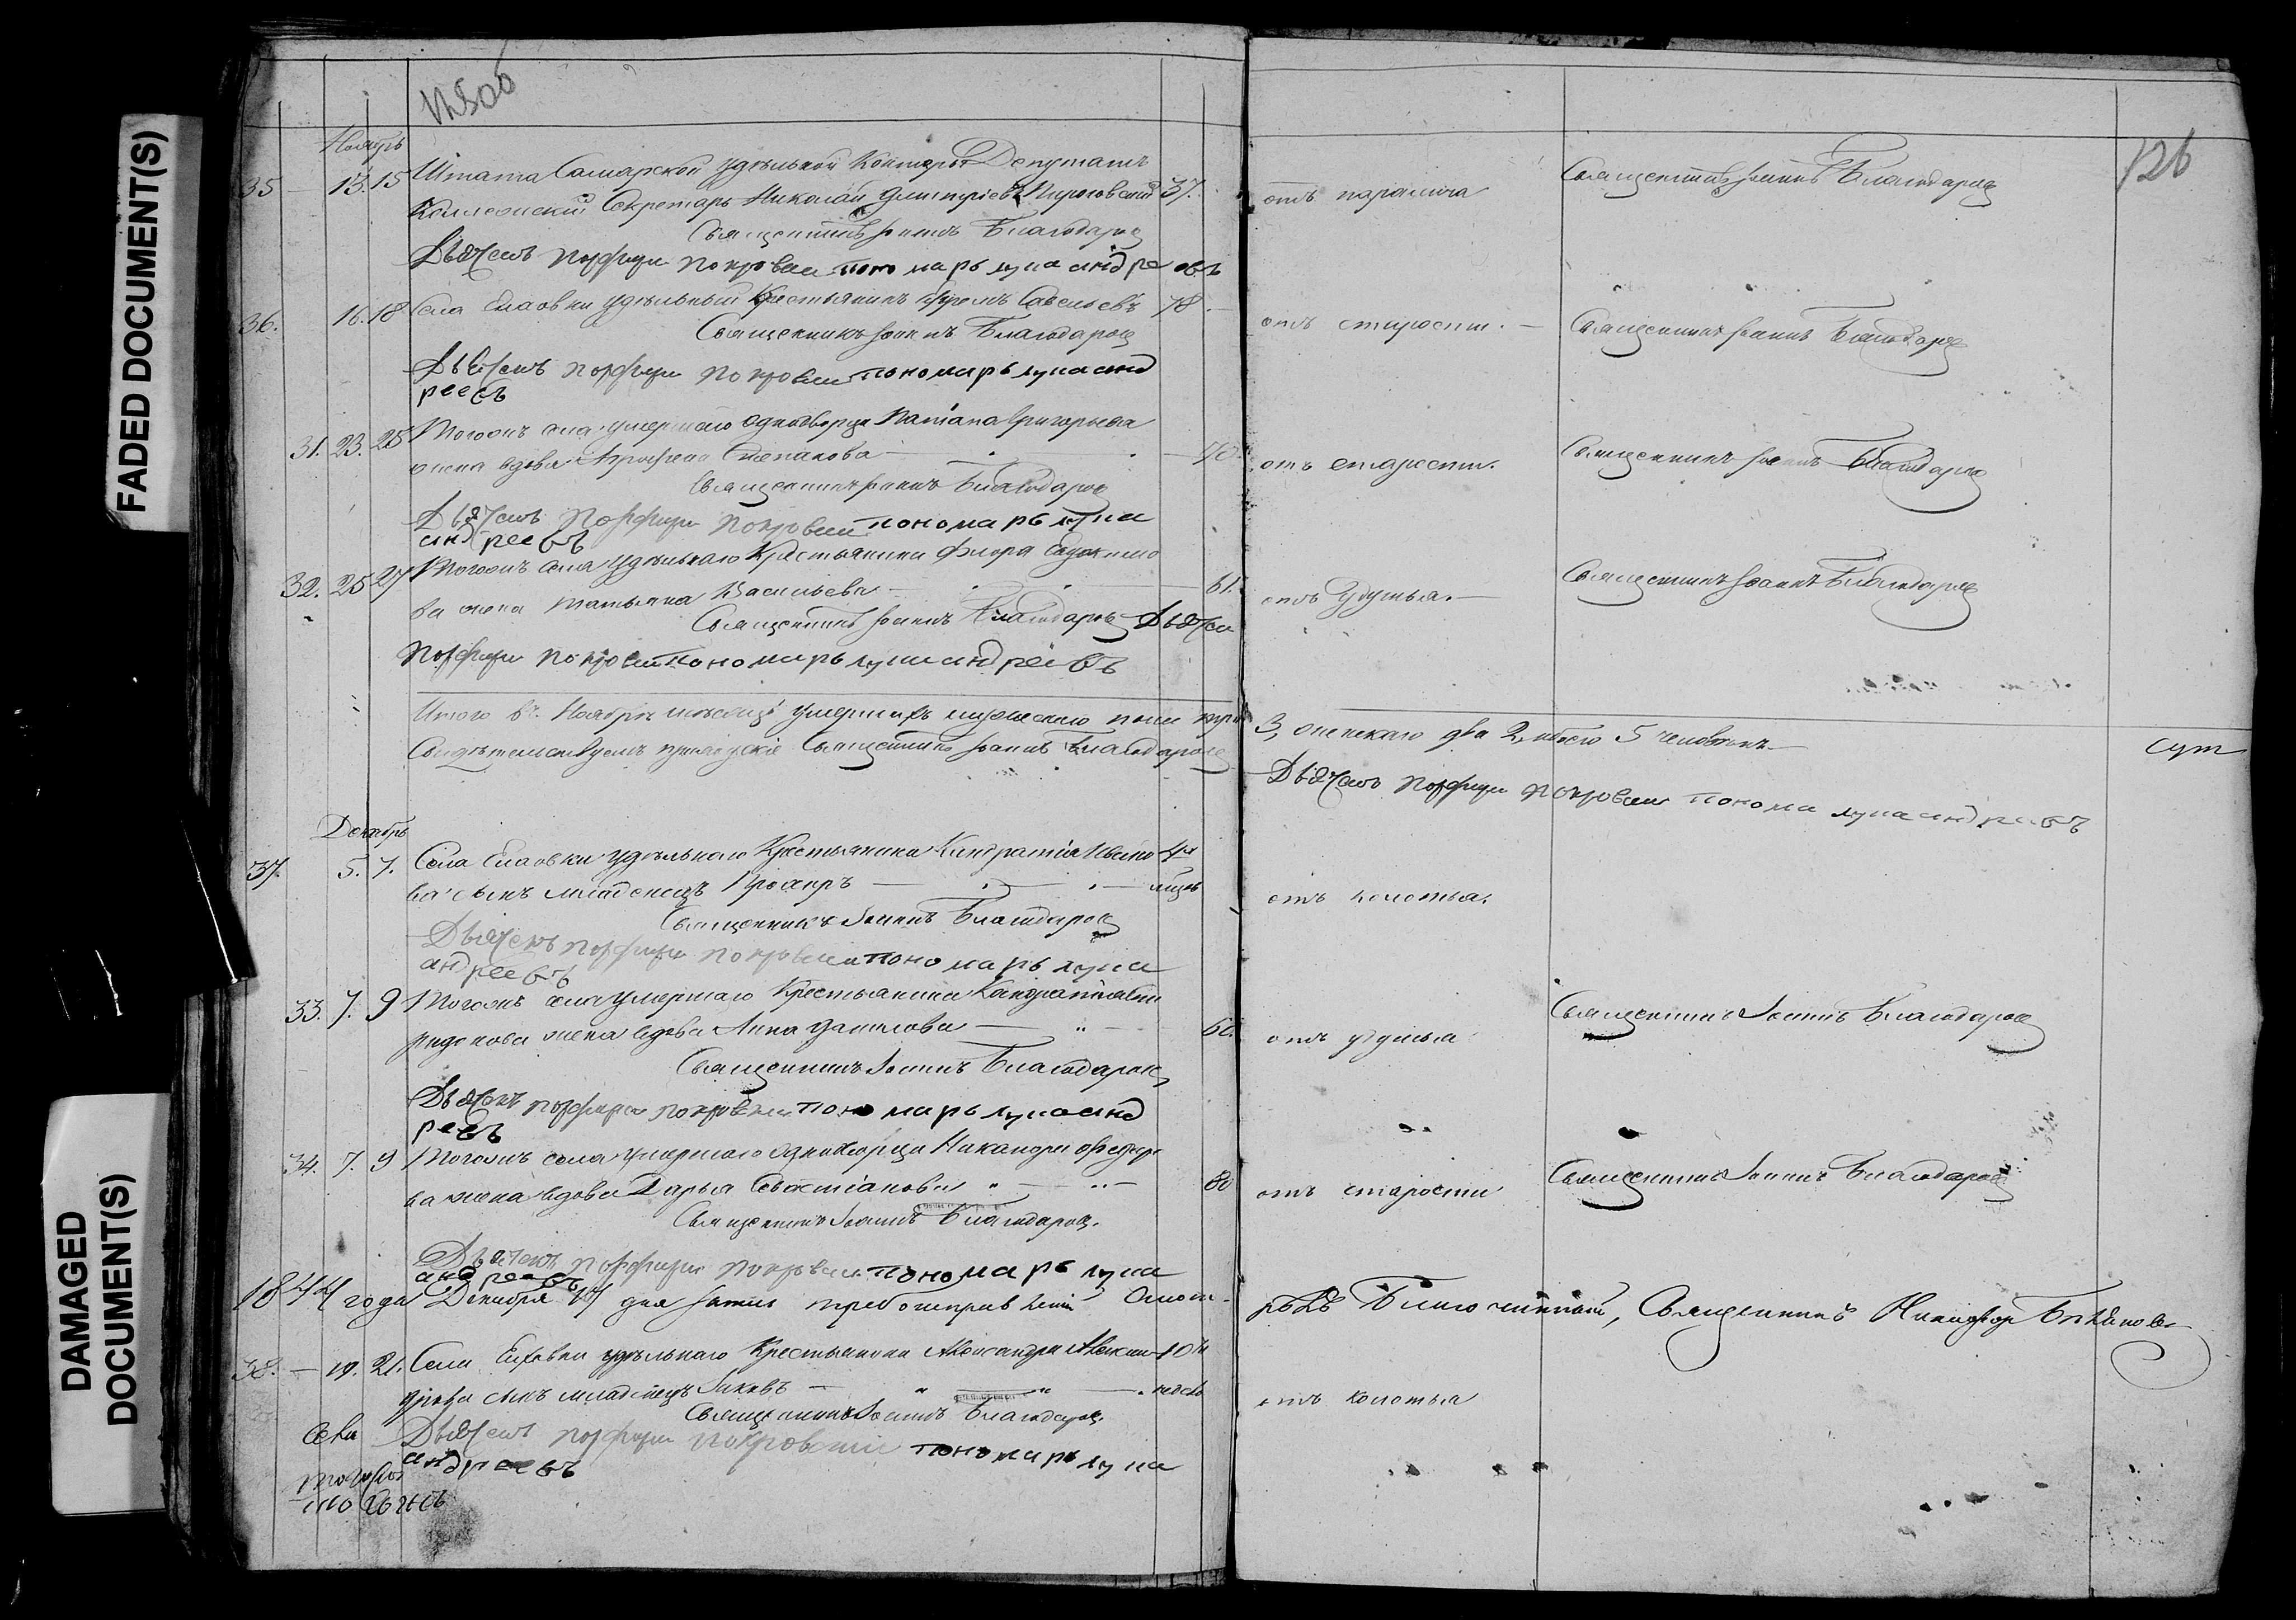 FADED DOCUMENT(S)
DAMAGED
DOCUMENT(S)
126
Ноябрь
35 — 13. 15 Штата Самарской удѣльной Конторы Депутатъ
Коллежскій Секретарь Николай Дмитріевъ 37. отъ паралича Священникъ Іоаннъ Благодаровъ
Священникъ Іоаннъ Благодаровъ
Дьячекъ Порфири Покровски пономарь лупа андреевъ
36. 16. 18 Села Елховки удѣльный Крестьянинъ Ефремъ Савельевъ 78 отъ старости. — Священникъ Іоаннъ Благодаровъ
Священникъ Іоаннъ Благодаровъ
Дьячекъ Порфири Покровски пономарь лупа анд
реевъ
31. 23. 25 Тогожъ села умершаго однодворца Григорьева
жена вдова Агрофена Степанова — 70 отъ старости. Священникъ Іоаннъ Благодаровъ
Священникъ Іоаннъ Благодаровъ
Дьячекъ Порфири Покровски пономарь лупа
андреевъ
32. 25 27 Тогожъ села удѣльнаго Крестьянина Флора Евдокимо
ва жена Татьяна Васильева — 61. отъ удушья. — Священникъ Іоаннъ Благодаровъ
Священникъ Іоаннъ Благодаровъ Дьячекъ
Порфири Покровски пономарь лупа андреевъ
Итого въ Ноябрѣ мѣсяцѣ умершихъ мужескаго пола три 3, женскаго два 2, всего 5 человѣкъ. —
Свидѣтельствуемъ приходскіе Священникъ Іоаннъ Благодаровъ
Дьячекъ Порфири Покровски понома лупа андреевъ
Декабрь
37. 5. 7. Села Елховки удѣльнаго Крестьянина Кандратія Ивано 4х
ва сынъ младенецъ — мцов отъ колотья.
Священникъ Іоаннъ Благодаровъ
Дьячекъ Порфири Покровски пономарь лупа
андреевъ
33. 7. 9 Тогожъ села умершаго Крестьянина Кандратія Спи
ридонова жена вдова Анна Данилова — 60. отъ удушья Священникъ Іоаннъ Благодаровъ
Священникъ Іоаннъ Благодаровъ
Дьячекъ Порфири Покровски пономарь лупа анд
реевъ
34. 7. 9 Тогожъ села умершаго однодворца Никандра Федоро
ва жена вдова Дарья Севастіанова — 80 отъ старости Священникъ Іоаннъ Благодаровъ
Священникъ Іоаннъ Благодаровъ.
Дьячекъ Порфири Покровски пономарь лупа
андреевъ
1844 года Декабря дня Смот-рѣлъ Благочинный, Священникъ
38. — 19. 21. Села Елховки удѣльнаго Крестьянина Александра Алексан 10ти
дрова сынъ младенецъ Іаковъ — недель отъ колотья
Священникъ Іоаннъ Благодаровъ.
Дьячекъ Порфири Покровски пономарь лупа
андреевъ